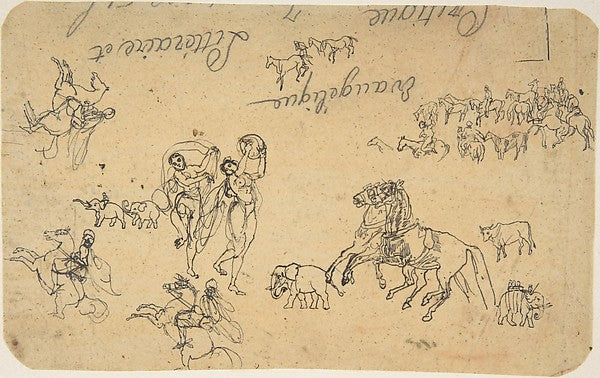 Évangélique
Littéraire, et
Critique